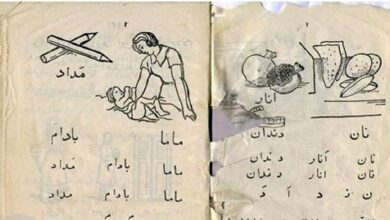 انار
نان دندان
نان انار دندان
نان انار دندان
مَداد
ماما بادام
ماما بادام مداد
ماما بادام مداد